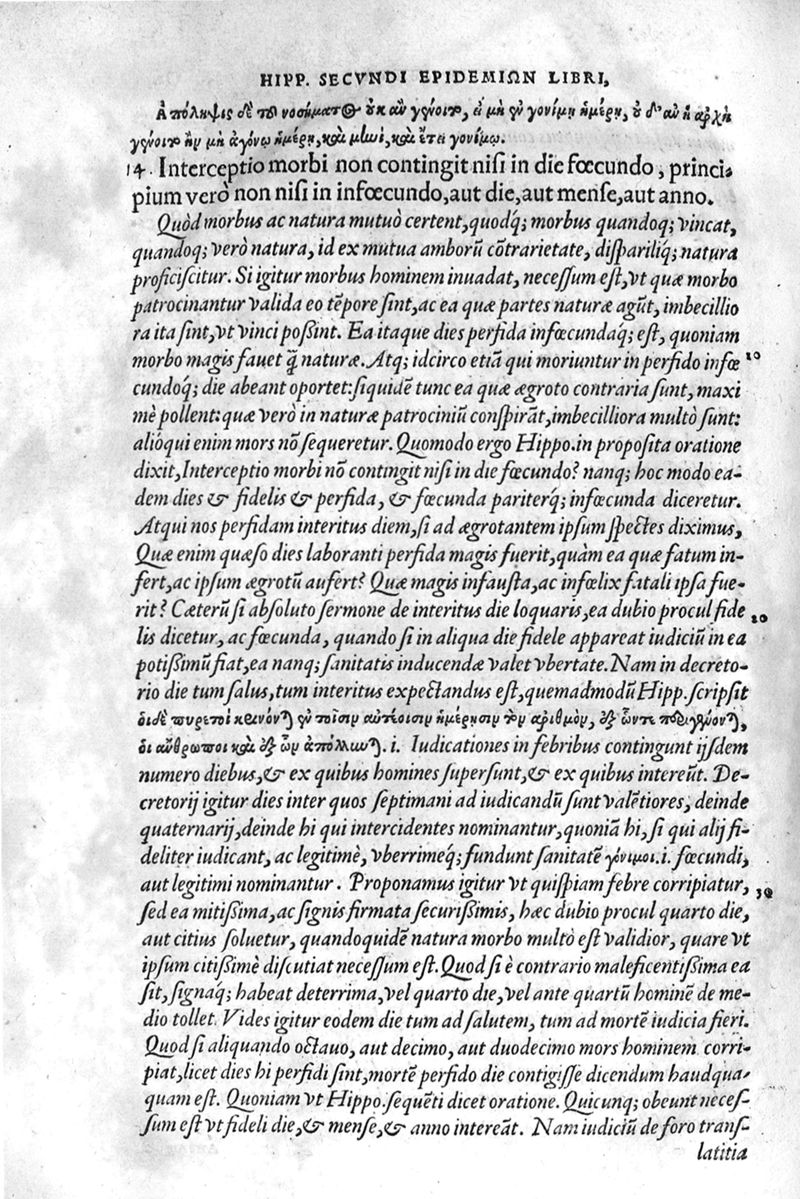 HIPP. SECVNDI EPIDEMIΩN LIBRI,
Ἀπόληψις δὲ τοῦ νοσήματος οὐκ ἂν γένοιτο, εἰ μὴ ἐν γονίμῃ ἡμέρῃ, οὐ δ' ἂν ἡ ἀρχὴ
γένοιτο ἢν μὴ ἀγόνῳ ἡμέρῃ, καὶ μηνὶ, καὶ ἔτει γονίμῳ.
14. Interceptio morbi non contingit nisi in die fœcundo, princi-
pium verò non nisi in infœcundo, aut die, aut mense, aut anno.
Quòd morbus ac natura mutuò certent, quodq́; morbus quandoq; vincat,
quandoq; verò natura, id ex mutua amborũ cõtrarietate, dispariliq́; natura
proficiscitur. Si igitur morbus hominem inuadat, necessum est, vt quæ morbo
patrocinantur valida eo tẽpore sint, ac ea quæ partes naturæ agũt, imbecillio
ra ita sint, vt vinci poßint. Ea itaque dies perfida infœcundaq́; est, quoniam
morbo magis fauet q̃ naturæ. Atq; idcirco etiã qui moriuntur in perfido infœ 10
cundoq́; die abeant oportet: siquidẽ tunc ea quæ ægroto contraria sunt, maxi
mè pollent: quæ verò in naturæ patrociniũ conspirãt, imbecilliora multò sunt:
alióqui enim mors nõ sequeretur. Quomodo ergo Hippo. in proposita oratione
dixit, Interceptio morbi nõ contingit nisi in die fœcundo? nanq; hoc modo ea-
dem dies & fidelis & perfida, & fœcunda pariterq́; infœcunda diceretur.
Atqui nos perfidam interitus diem, si ad ægrotantem ipsum spectes diximus,
Quæ enim quæso dies laboranti perfida magis fuerit, quàm ea quæ fatum in-
fert, ac ipsum ægrotũ aufert? Quæ magis infausta, ac infœlix fatali ipsa fue-
rit? Cæterũ si absoluto sermone de interitus die loquaris, ea dubio procul fide 20
lis dicetur, ac fœcunda, quando si in aliqua die fidele appareat iudiciũ in ea
potißimũ fiat, ea nanq; sanitatis inducendæ valet vbertate. Nam in decreto-
rio die tum salus, tum interitus expectandus est, quemadmodũ Hipp. scripsit
οἱ δὲ πυρετοὶ κρίνονται ἐν τοῖσιν αὐτέοισιν ἡμέρῃσιν τὸν ἀριθμὸν, ἐξ ὧν τε περιγίνονται,
οἱ ἄνθρωποι καὶ ἐξ ὧν ἀπόλλυνται. i. Iudicationes in febribus contingunt ijsdem
numero diebus, & ex quibus homines supersunt, & ex quibus intereũt. De-
cretorij igitur dies inter quos septimani ad iudicandũ sunt valẽtiores, deinde
quaternarij, deinde hi qui intercidentes nominantur, quoniã hi, si qui alij fi-
deliter iudicant, ac legitimè, vberrimeq́; fundunt sanitatẽ γόνιμοι. i. fœcundi,
aut legitimi nominantur. Proponamus igitur vt quispiam febre corripiatur, 30
sed ea mitißima, ac signis firmata securißimis, hæc dubio procul quarto die,
aut citius soluetur, quandoquidẽ natura morbo multò est validior, quare vt
ipsum citißimè discutiat necessum est. Quod si è contrario maleficentißima ea
sit, signaq́; habeat deterrima, vel quarto die, vel ante quartũ hominẽ de me-
dio tollet. Vides igitur eodem die tum ad salutem, tum ad mortẽ iudicia fieri.
Quod si aliquando octauo, aut decimo, aut duodecimo mors hominem corri-
piat, licet dies hi perfidi sint, mortẽ perfido die contigisse dicendum haudqua-
quam est. Quoniam vt Hippo. sequẽti dicet oratione. Quicunq; obeunt neces-
sum est vt fideli die, & mense, & anno intereãt. Nam iudiciũ de foro trans-
latitia